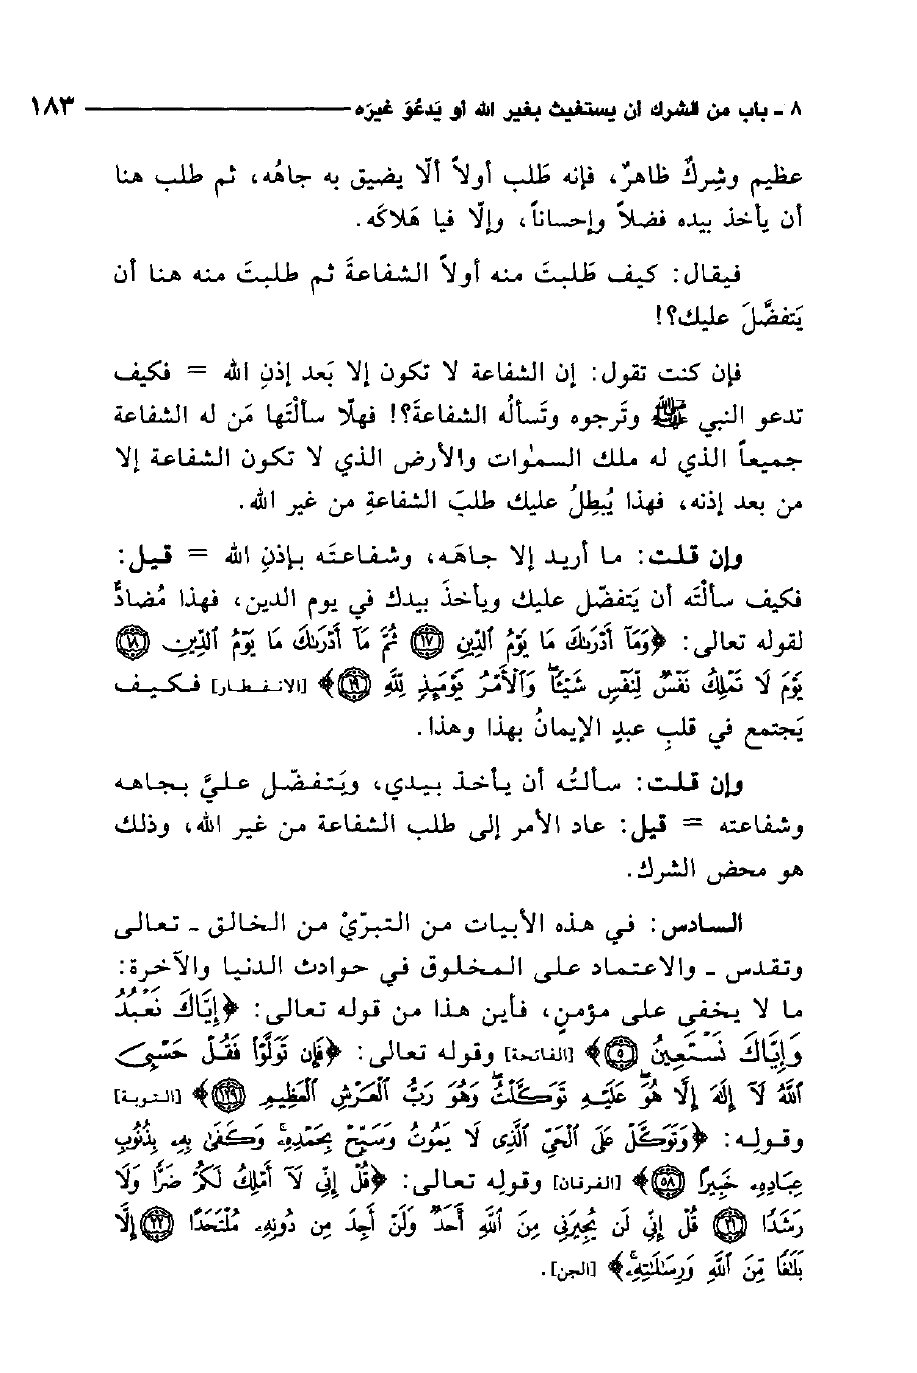 ٨ - باب من الشرك أن يستغيث بغير الله أو يَدعُوَ غيرَه ١٨٣
عظيم وشِركٌ ظاهرٌ، فإنه طَلب أولاً ألّا يضيق به جاهُه، ثم طلب هنا
أن يأخذ بيده فضلاً وإحساناً، وإلّا فيا هَلاكَه.
فيقال: كيف طَلبتَ منه أولاً الشفاعةَ ثم طلبتَ منه هنا أن
يَتفضَّلَ عليك؟!
فإن كنت تقول: إن الشفاعة لا تكون إلا بَعد إذنِ الله = فكيف
تدعو النبي ﷺ وتَرجوه وتَسألُه الشفاعةَ؟! فهلّا سألْتَها مَن له الشفاعة
جميعاً الذي له ملك السمٰوات والأرض الذي لا تكون الشفاعة إلا
من بعد إذنه، فهذا يُبطِلُ عليك طلبَ الشفاعةِ من غير الله.
وإن قلت: ما أريد إلا جاهَه، وشفاعتَه بإذنِ الله = قيل:
فكيف سألْتَه أن يَتفضّل عليك ويأخذَ بيدك في يوم الدين، فهذا مُضادٌّ
لقوله تعالى: ﴿وَمَآ أَدْرَىٰكَ مَا يَوْمُ ٱلدِّينِ ۝١٧ ثُمَّ مَآ أَدْرَىٰكَ مَا يَوْمُ ٱلدِّينِ ۝١٨
يَوْمَ لَا تَمْلِكُ نَفْسٌ لِّنَفْسٍ شَيْـًٔا ۖ وَٱلْأَمْرُ يَوْمَئِذٍ لِّلَّهِ ۝١٩﴾ [الانفطار] فكيف
يَجتمع في قلبِ عبدٍ الإيمانُ بهذا وهذا.
وإن قلت: سألتُه أن يأخذ بيدي، ويَتفضّل عليَّ بجاهه
وشفاعته = قيل: عاد الأمر إلى طلب الشفاعة من غير الله، وذلك
هو محض الشرك.
السادس: في هذه الأبيات من التبرّيْ من الخالق - تعالى
وتقدس - والاعتماد على المخلوق في حوادث الدنيا والآخرة:
ما لا يخفى على مؤمنٍ، فأين هذا من قوله تعالى: ﴿إِيَّاكَ نَعْبُدُ
وَإِيَّاكَ نَسْتَعِينُ ۝٥﴾ [الفاتحة] وقوله تعالى: ﴿فَإِن تَوَلَّوْا۟ فَقُلْ حَسْبِىَ
ٱللَّهُ لَآ إِلَٰهَ إِلَّا هُوَ ۖ عَلَيْهِ تَوَكَّلْتُ ۖ وَهُوَ رَبُّ ٱلْعَرْشِ ٱلْعَظِيمِ ۝١٢٩﴾ [التوبة]
وقوله: ﴿وَتَوَكَّلْ عَلَى ٱلْحَىِّ ٱلَّذِى لَا يَمُوتُ وَسَبِّحْ بِحَمْدِهِۦ ۚ وَكَفَىٰ بِهِۦ بِذُنُوبِ
عِبَادِهِۦ خَبِيرًا ۝٥٨﴾ [الفرقان] وقوله تعالى: ﴿قُلْ إِنِّى لَآ أَمْلِكُ لَكُمْ ضَرًّا وَلَا
رَشَدًا ۝٢١ قُلْ إِنِّى لَن يُجِيرَنِى مِنَ ٱللَّهِ أَحَدٌ وَلَنْ أَجِدَ مِن دُونِهِۦ مُلْتَحَدًا ۝٢٢ إِلَّا
بَلَٰغًا مِّنَ ٱللَّهِ وَرِسَٰلَٰتِهِۦ ۚ﴾ [الجن].